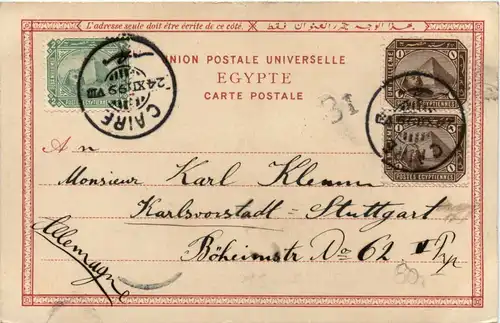 L'adresse seule doit être écrite de ce côté.
UNION POSTALE UNIVERSELLE
EGYPTE
CARTE POSTALE
CAIRE
24 XI 99 VIII
31
POSTES EGYPTIENNES
POSTES EGYPTIENNES
An
Monsieur Karl Klemm
Karlsvorstadt - Stuttgart
Böheimstr No 62 II
Allemagne